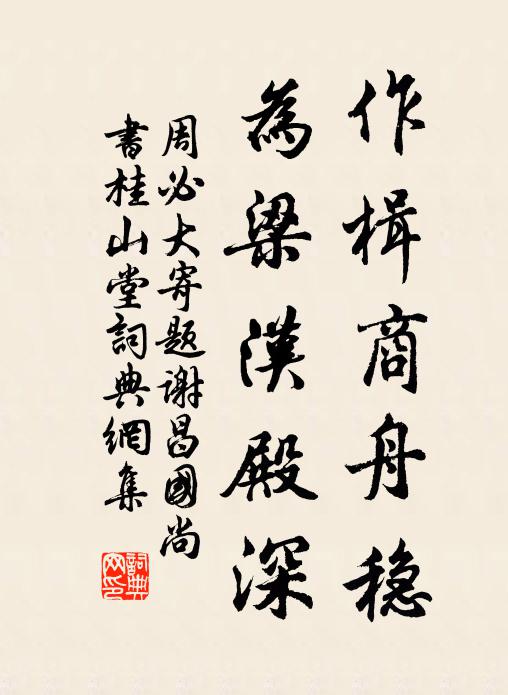 作楫商舟稳
為梁漢殿深
周必大寄题谢昌國尚
書桂山堂詞典網集
詞典
网印